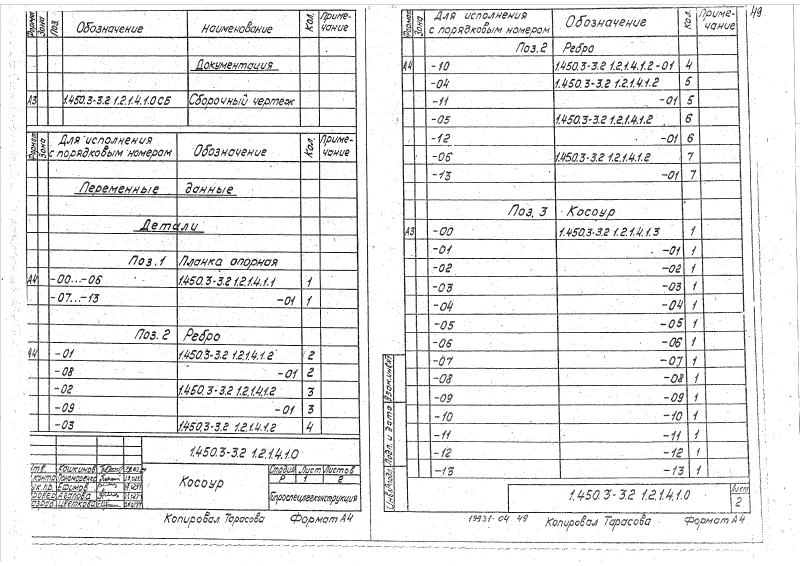 Формат Зона Поз. Обозначение Наименование Кол. Приме-
чание
Документация
А3 1.450.3-3.2 1.2.1.4.1.0СБ Сборочный чертеж
Формат Зона Для исполнения Обозначение Кол. Приме-
с порядковым номером чание
Переменные данные
Детали
Поз.1 Планка опорная
А4 -00...-06 1.450.3-3.2 1.2.1.4.1.1 1
-07...-13 -01 1
Поз. 2 Ребро
А4 -01 1.450.3-3.2 1.2.1.4.1.2 2
-08 -01 2
-02 1.450.3-3.2 1.2.1.4.1.2 3
-09 -01 3
-03 1.450.3-3.2 1.2.1.4.1.2 4
1.450.3-3.2 1.2.1.4.1.0
Косоур
Стадия Лист Листов
Р 1 2
Кошкинов
Ефимов
Агапова
Цветкова
Копировал Тарасова Формат А4
49
Формат Зона Для исполнения Обозначение Кол. Приме-
с порядковым номером чание
Поз.2 Ребро
А4 -10 1.450.3-3.2 1.2.1.4.1.2-01 4
-04 1.450.3-3.2 1.2.1.4.1.2 5
-11 -01 5
-05 1.450.3-3.2 1.2.1.4.1.2 6
-12 -01 6
-06 1.450.3-3.2 1.2.1.4.1.2 7
-13 -01 7
Поз. 3 Косоур
А3 -00 1.450.3-3.2 1.2.1.4.1.3 1
-01 -01 1
-02 -02 1
-03 -03 1
-04 -04 1
-05 -05 1
-06 -06 1
-07 -07 1
-08 -08 1
-09 -09 1
-10 -10 1
-11 -11 1
-12 -12 1
-13 -13 1
Подп. и дата Взам.инв.№
1.450.3-3.2 1.2.1.4.1.0 Лист
2
19931-04 49 Копировал Тарасова Формат А4